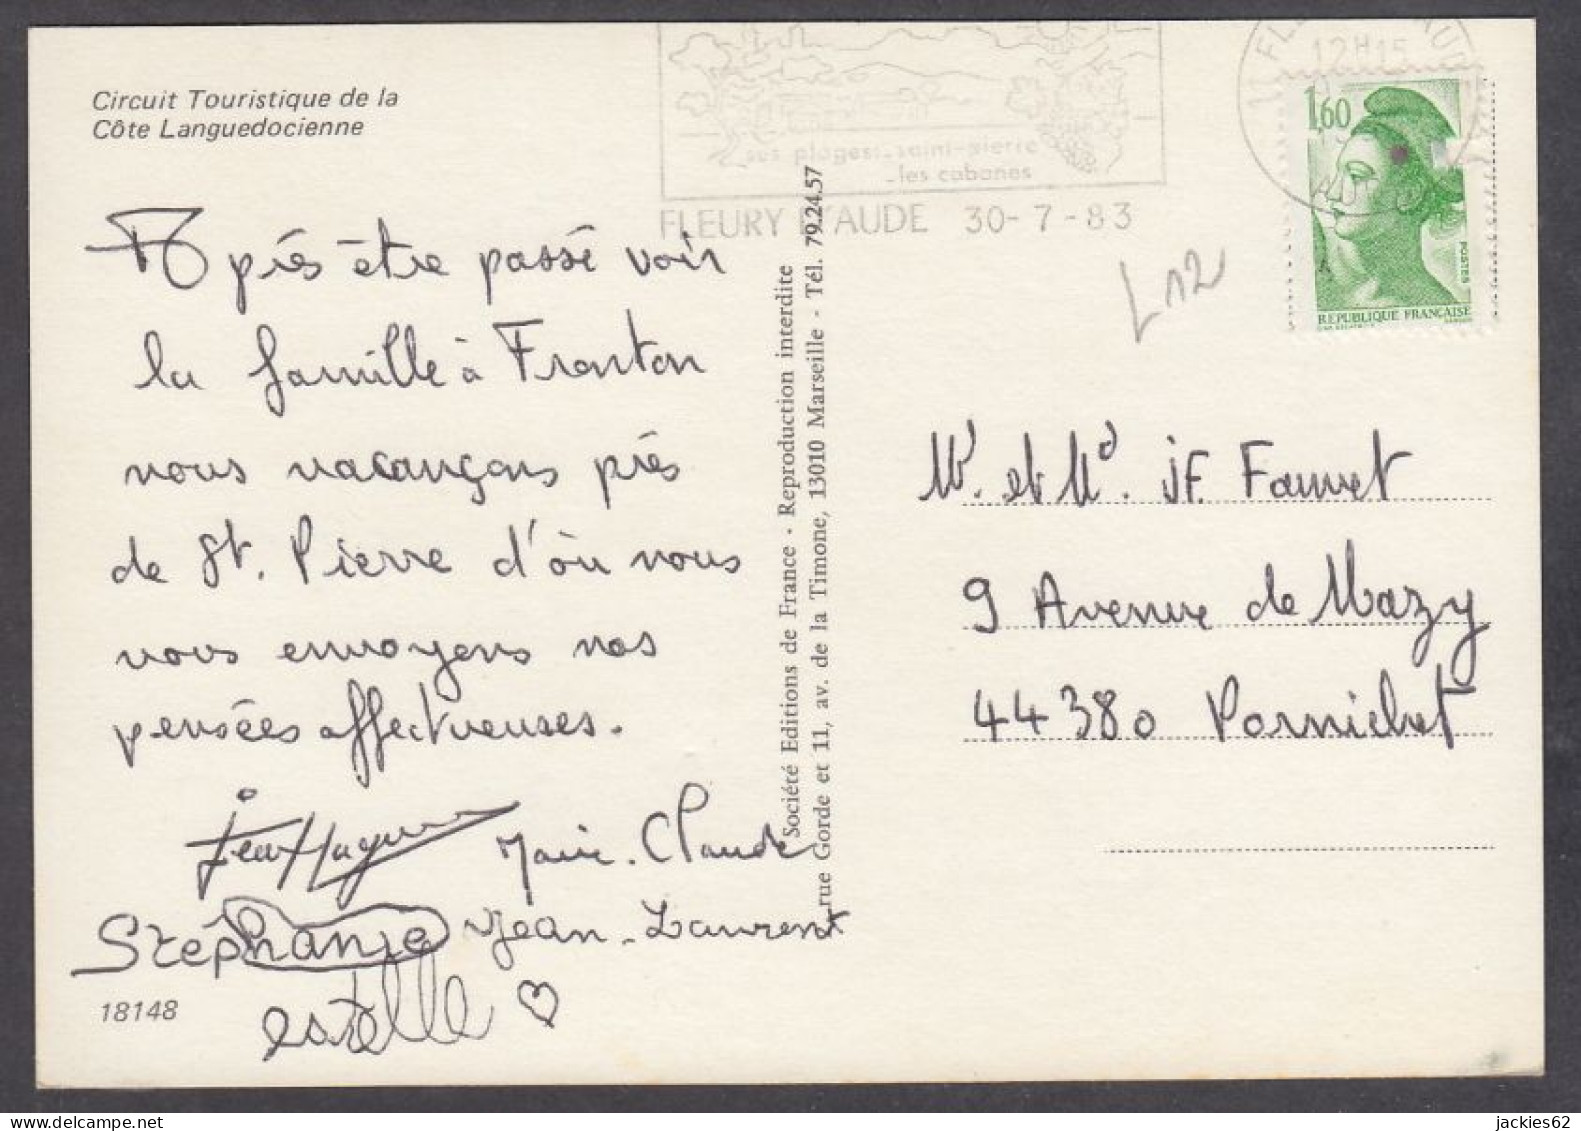 Circuit Touristique de la
Côte Languedocienne
ses plages: saint-pierre
les cabanes
FLEURY D'AUDE 30-7-83
12H15
1,60
POSTES
REPUBLIQUE FRANÇAISE
L12
Après être passé voir
la famille à Fronton
nous vacançons près
de St. Pierre d'où nous
vous envoyons nos
pensées affectueuses.
Marie-Claude
Stéphanie Jean-Laurent
estelle
18148
Société Editions de France - Reproduction interdite
rue Gorde et 11, av. de la Timone, 13010 Marseille - Tél. 79.24.57
Mr. et Md. JF. Fauvet
9 Avenue de Mazy
44380 Pornichet
jackies62